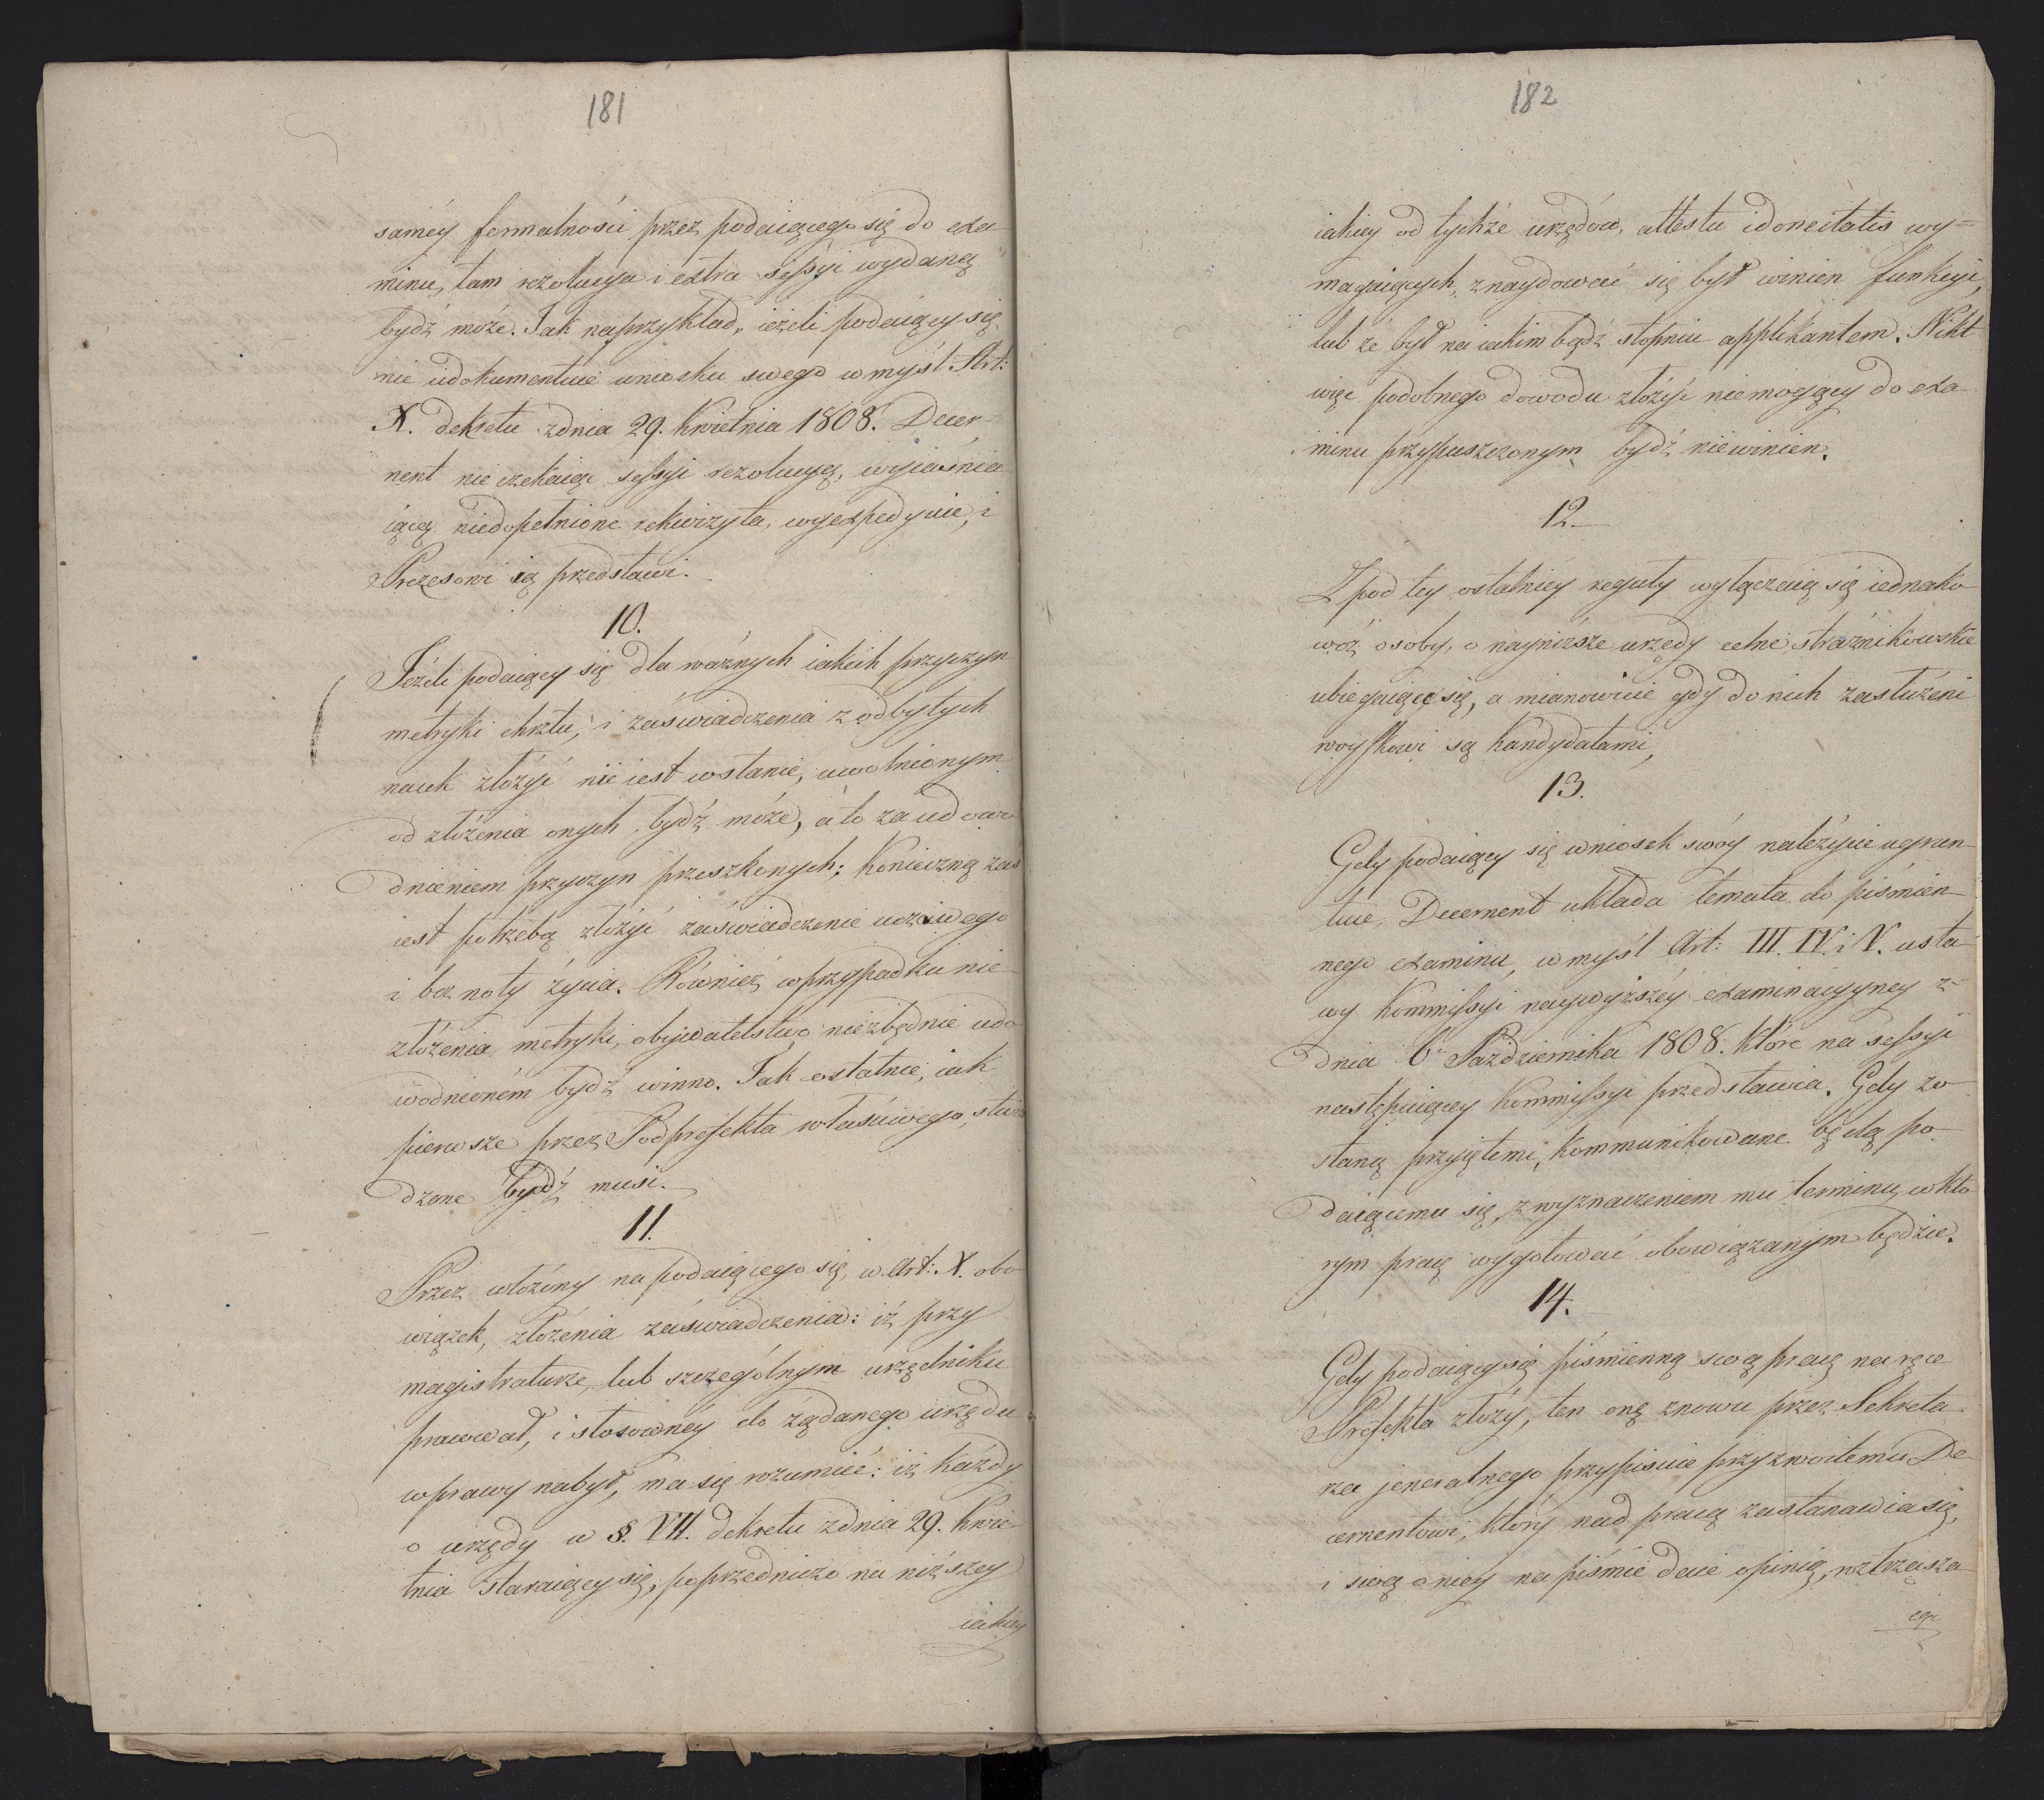 181
saméy formalności przez podaiącego się do exa-
minu, tam rezolucya i extra sessyi wydaną
bydź może. Jak naprzykład, ieżeli podaiący się
nie udokumentuie wniosku swego w myśl Art:
X. dekretu zdnia 29. Kwietnia 1808. Decer-
nent nie czekaiąc sessyi rezolucyą, wyiaśnia-
iącą niedopełnione rekwizyta, wyexpedyuie, i
Prezesowi ią przedstawi.
10.
Jeżeli podaiący się dla ważnych iakich przyczyn
metryki chrztu, i zaświadczenia z odbytych
nauk złożyć nie iest wstanie, uwolnionym
od złożenia onych bydź może, a to za udowo-
dnieniem przyczyn przeszkonych; Konieczną zaś
iest potrzebą złożyć zaświadczenie uczciwego
i bez noty życia. Również w przypadku nie-
złożenia metryki, obywatelstwo niezbędnie udo-
wodnioném bydź winno. Tak ostatnie, iak
pierwsze przez Podprefekta właściwego, stwier-
dzone bydź musi.
11.
Przez włożony na podaiącego się, w Art: X. obo-
wiązek, złożenia zaświadczenia: iż przy
magistraturze, lub szczególnym urzędniku
pracował, i stosownéy do żądanego urzędu
wprawy nabył, ma się rozumieć: iż każdy
o urzędy w §. VII. dekretu zdnia 29. Kwie-
tnia staraiący się, poprzedniczo na niższey
iakiey
182
iakiey od tychże urzędów, attestu idoneitatis wy-
magaiących, znaydować się był winien funkcyi,
lub że był na iakimbądź stopniu applikantem. Nikt
więc podobnego dowodu złożyć niemogący do exa-
minu przypuszczonym bydź niewinien.
12.
Z pod tey ostatniey reguły wyłączaią się iednako-
woż osoby, o nayniższe urzędy celne, strażnikowskie
ubiegaiące się, a mianowicie gdy do nich zasłużeni
woyskowi są kandydatami,
13.
Gdy podaiący się wniosek swóy należycie ugrun-
tuie, Decernent układa temata do piśmien-
nego examinu, w myśl Art: III. IV. i V. usta-
wy Kommissyi naywyższéy examinacyyney z-
dnia 6 Października 1808. które na sessyi
następuiącey Kommissyi przedstawia. Gdy zo-
staną przyiętemi, kommunikowane będą po-
daiącemu się, z wyznaczeniem mu terminu, w któ-
rym pracę wygotować obowiązanym będzie.
14.
Gdy podaiący się piśmienną swą pracę na ręce
Prefekta złoży, ten onę znowu przez Sekreta-
rza jeneralnego przypisuie przyzwoitemu De-
cernentowi, który nad pracą zastanawia się,
i swą o niey na piśmie daie opinię, roztrząsa-
iąc